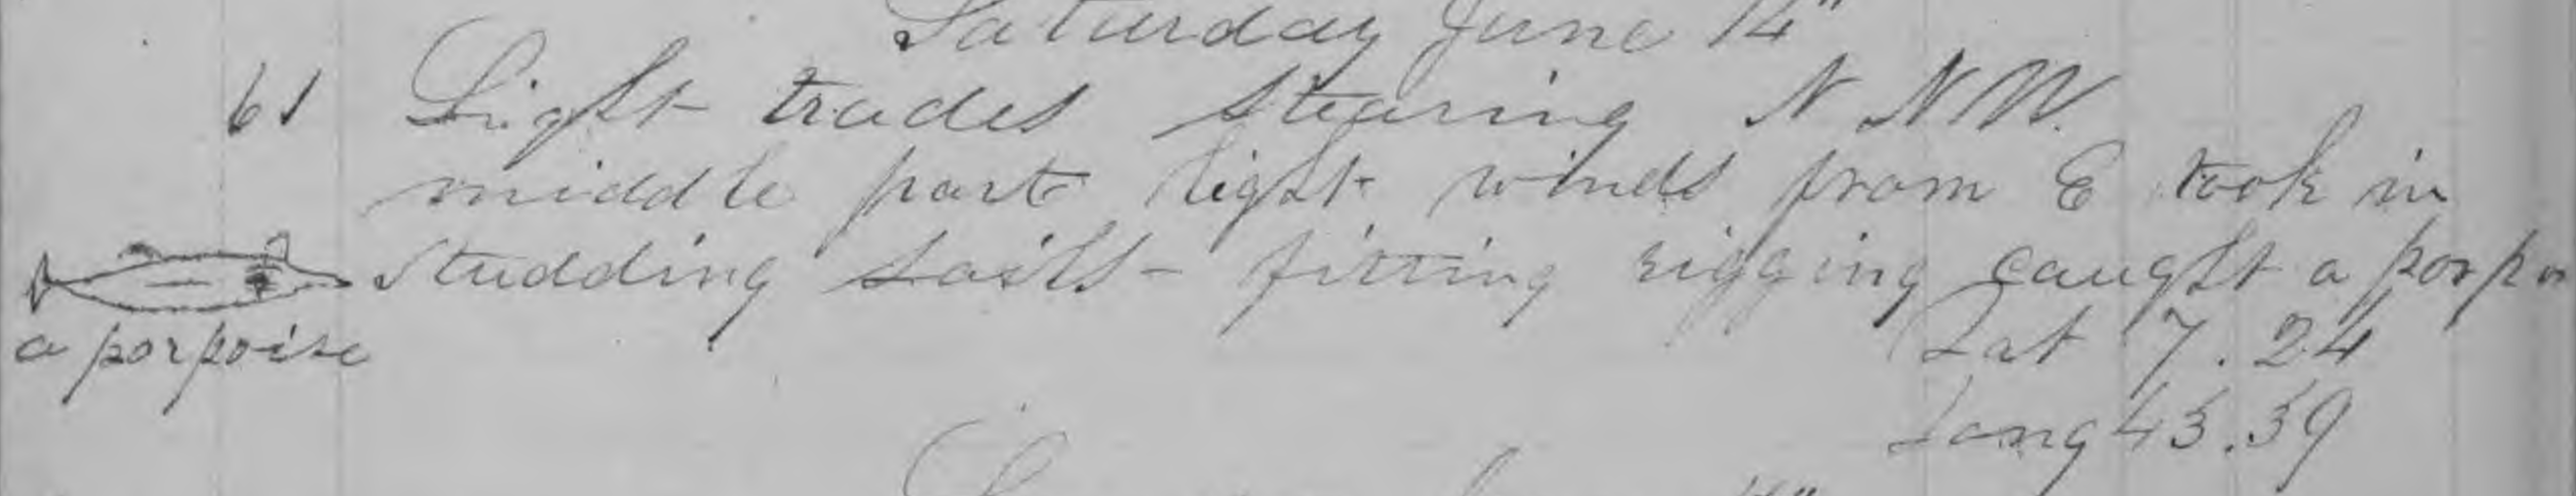 Saturday June 14"
61 Light trades stearing N N W.
middle part light winds from E took in
studding sails - fitting rigging caught a porpo
a porpoise
Lat 7.24
Long 43.39